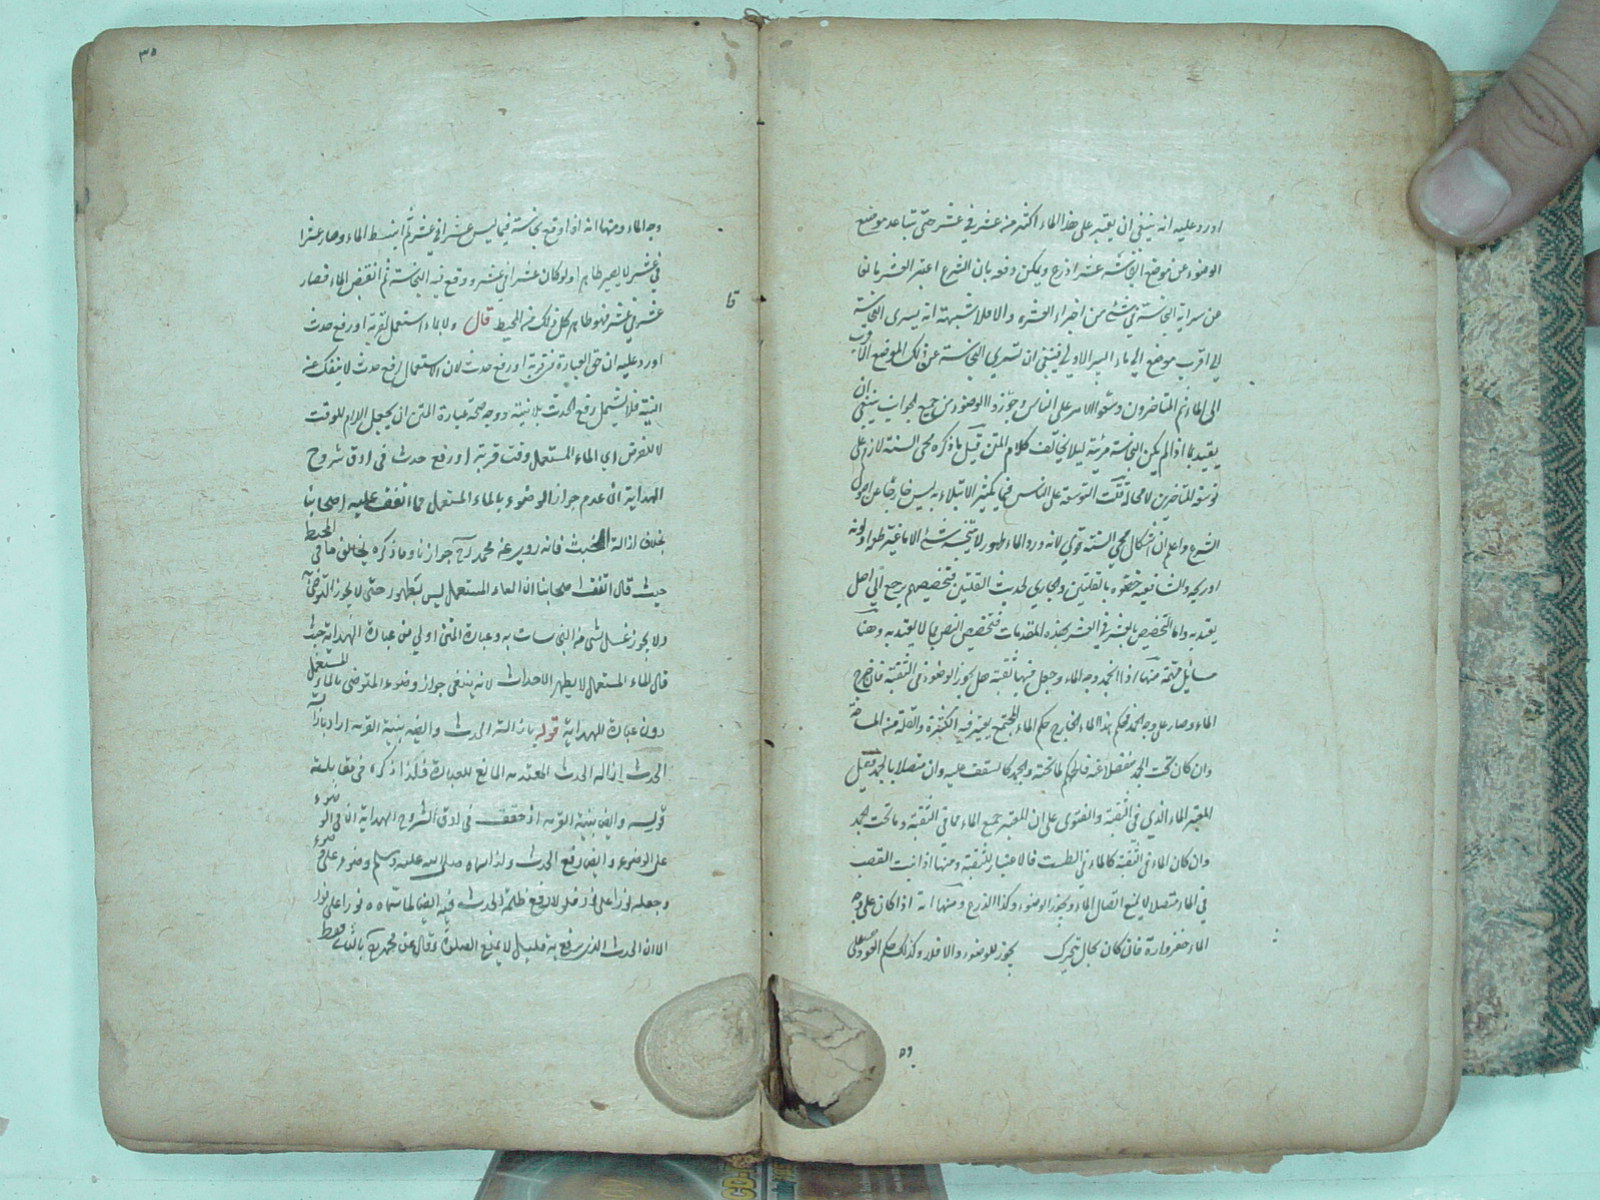 اورد عليه انه ينبغي ان يعتبر على هذا الماء اكثر من عشر في عشر حتى تباعد موضع
الوضوء عن موضع النجاسة عشر اذرع ويمكن دفعه بان الشرع اعتبر العشر مانعا
عن سراية النجاسة في شئ من اجزاء العشر والا فلا شبهة انه يسرى النجاسة
الى اقرب موضع الى ماء البير الاولى فينبغي ان تسري النجاسة عن ذلك الموضع
الى الماء ثم المتاخرون وسعوا الامر على الناس وجوزوا الوضوء من جميع الجوانب ينبغي ان
يقيد بما اذا لم يكن النجاسة مرئية ليلا يخالف كلام المتن قيل ما ذكره محي السنة لازم على
توسعة المتاخرين لا محالة قلت التوسعة على الناس فيما يكثر الابتلاء به ليس خارجا عن اصول
الشرع واعلم ان اشكال محي السنة قوي لانه ورد الماء طهور لا ينجسه شئ الا ما غير طعمه او لونه
او ريحه والشافعية خصوه بالقلتين والجاري لحديث القلتين فتخصيصهم يرجع الى اصل
يعتد به واما التخصيص بالعشر في العشر بهذه المقدمات فتخصيص النص بما لا يعتد به وهنا
مسائل مهمة منها اذا انجمد وجه الماء وجعل فيها ثقبة هل يجوز الوضوء في الثقبة فان خرج
الماء وصار على وجه الجمد فحكم هذا الماء الخارج حكم الماء المجتمع يعتبر فيه الكثرة والقلة من المساحة
وان كان تحت الجمد منفصلا عنه فالحكم لما تحته والجمد كالسقف عليه وان متصلا بالجمد فقيل
المعتبر الماء الذي في الثقبة والفتوى على ان المعتبر جميع الماء مما في الثقبة وما تحت الجمد
وان كان الماء في الثقبة كالماء في الطست فالاعتبار للثقبة ومنها اذا نبت القصب
في الماء متصلا لا يمنع اتصال الماء ويجوز الوضوء وكذا الزرع ومنها انه اذا كان على وجه
الماء خضر وارة فان كان بحال يتحرك يجوز الوضوء والا فلا وكذلك حكم العود على
وه
٣٥
وجه الماء ومنها انه اذا وقع نجاسة فيما ليس عشرا في عشر ثم انبسط الماء وصار عشرا
في عشر لا يصير طاهرا ولو كان عشرا في عشر ووقع فيه النجاسة ثم انقبض الماء فصار
عشر في عشر فهو طاهر كل ذلك من المحيط قال ولا بماء استعمل لقربة او رفع حدث
اورد عليه ان حق العبارة في قربة او رفع حدث لان الاستعمال لرفع حدث لا ينفك عن
النية فلا تشمل رفع الحدث بلا نية ووجه صحة عبارة المتن ان يجعل اللام للوقت
لا للغرض اي الماء المستعمل وقت قربة او رفع حدث في ادق شروح
الهداية ان عدم جواز الوضوء بالماء المستعمل مما اتفق عليه اصحابنا
بخلاف ازالة الخبث فانه روي عن محمد رح جوازنا وما ذكره يخالف ما في المحيط
حيث قال اتفق اصحابنا ان الماء المستعمل ليس بطهور حتى لا يجوز التوضئ
ولا يجوز غسل شئ من النجاسات به وعبارة المتن اولى من عبارة الهداية حيث
قال الماء المستعمل لا يطهر الاحداث لانه ينتفي جواز وضوء المتوضي بالماء المستعمل
دون عبارة الهداية قوله بازالة الحدث وايضا بنية القربة اراد بازالة
الحدث ازالة الحدث المعتد به المانع للعبادة فلذا ذكره في مقابلة
قوله وايضا بنية القربة اذ حقق في ادق الشروح الهداية ان في الوضوء
على الوضوء وايضا رفع الحدث ولذا سماه صلى الله عليه وسلم وضوء على وضوء
وجعله نورا على نور فلولا رفع ظلمة الحدث فيه ايضا لما سماه نورا على نور
الا ان الحدث الذي يرفع به قليل لا يمنع الصلوة وقال عن محمد رح بالثاني فقط